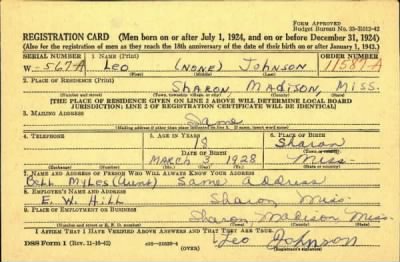 FORM APPROVED
Budget Bureau No. 33-R012-42
REGISTRATION CARD (Men born on or after July 1, 1924, and on or before December 31, 1924)
(Also for the registration of men as they reach the 18th anniversary of the date of their birth on or after January 1, 1943.)
SERIAL NUMBER 1. NAME (Print) ORDER NUMBER
W-567-A Leo (NONE) Johnson 11587-A
(First) (Middle) (Last)
2. PLACE OF RESIDENCE (Print)
Sharon, Madison, Miss.
[THE PLACE OF RESIDENCE GIVEN ON LINE 2 ABOVE WILL DETERMINE LOCAL BOARD
JURISDICTION; LINE 2 OF REGISTRATION CERTIFICATE WILL BE IDENTICAL]
3. MAILING ADDRESS
Same
[Mailing address if other than place indicated on line 2. If same, insert word same]
4. TELEPHONE 5. AGE IN YEARS 6. PLACE OF BIRTH
18 Sharon
DATE OF BIRTH
March 3, 1928 Miss.
(Exchange) (Number) (Mo.) (Day) (Yr.)
7. NAME AND ADDRESS OF PERSON WHO WILL ALWAYS KNOW YOUR ADDRESS
Bell Myles (Aunt) Same address
8. EMPLOYER'S NAME AND ADDRESS
E. W. Hill Sharon Miss.
9. PLACE OF EMPLOYMENT OR BUSINESS
Sharon, Madison Miss.
I AFFIRM THAT I HAVE VERIFIED ABOVE ANSWERS AND THAT THEY ARE TRUE.
DSS Form 1 (Rev. 11-16-42) (OVER) Leo Johnson
(Registrant's signature)